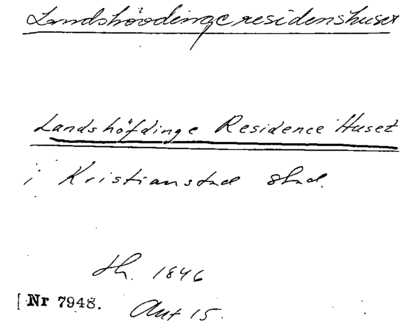 Landshövdingeresidenshuset
Landshöfdinge Residence Huset
i Kristianstad stad.
th. 1846
Nr 7948. Aut 15.